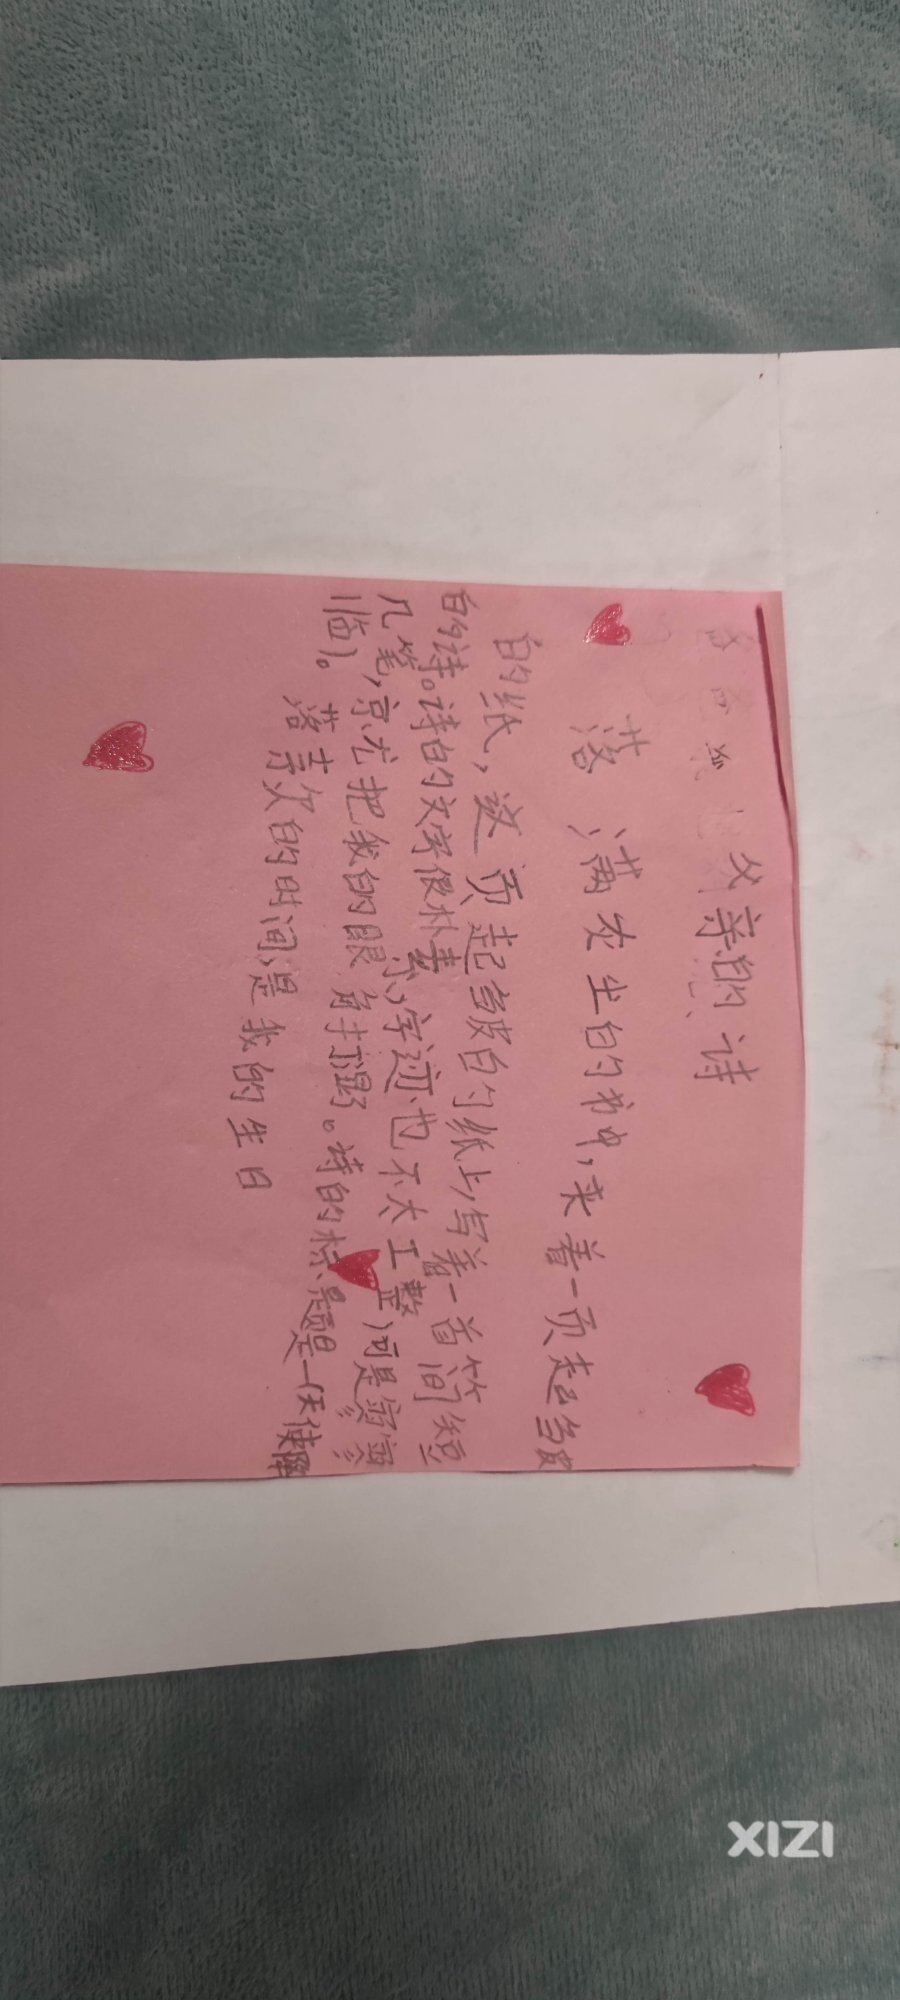 父亲的诗
落满灰尘的书中,夹着一页起皱
的纸,这页起皱的纸上,写着一首简短
的诗。诗的文字很朴素,字迹也不太工整,可是寥寥
几笔,京尤把我的眼角打湿。诗的标题是—《天使降
临》。
落款的时间,是我的生日
XIZI